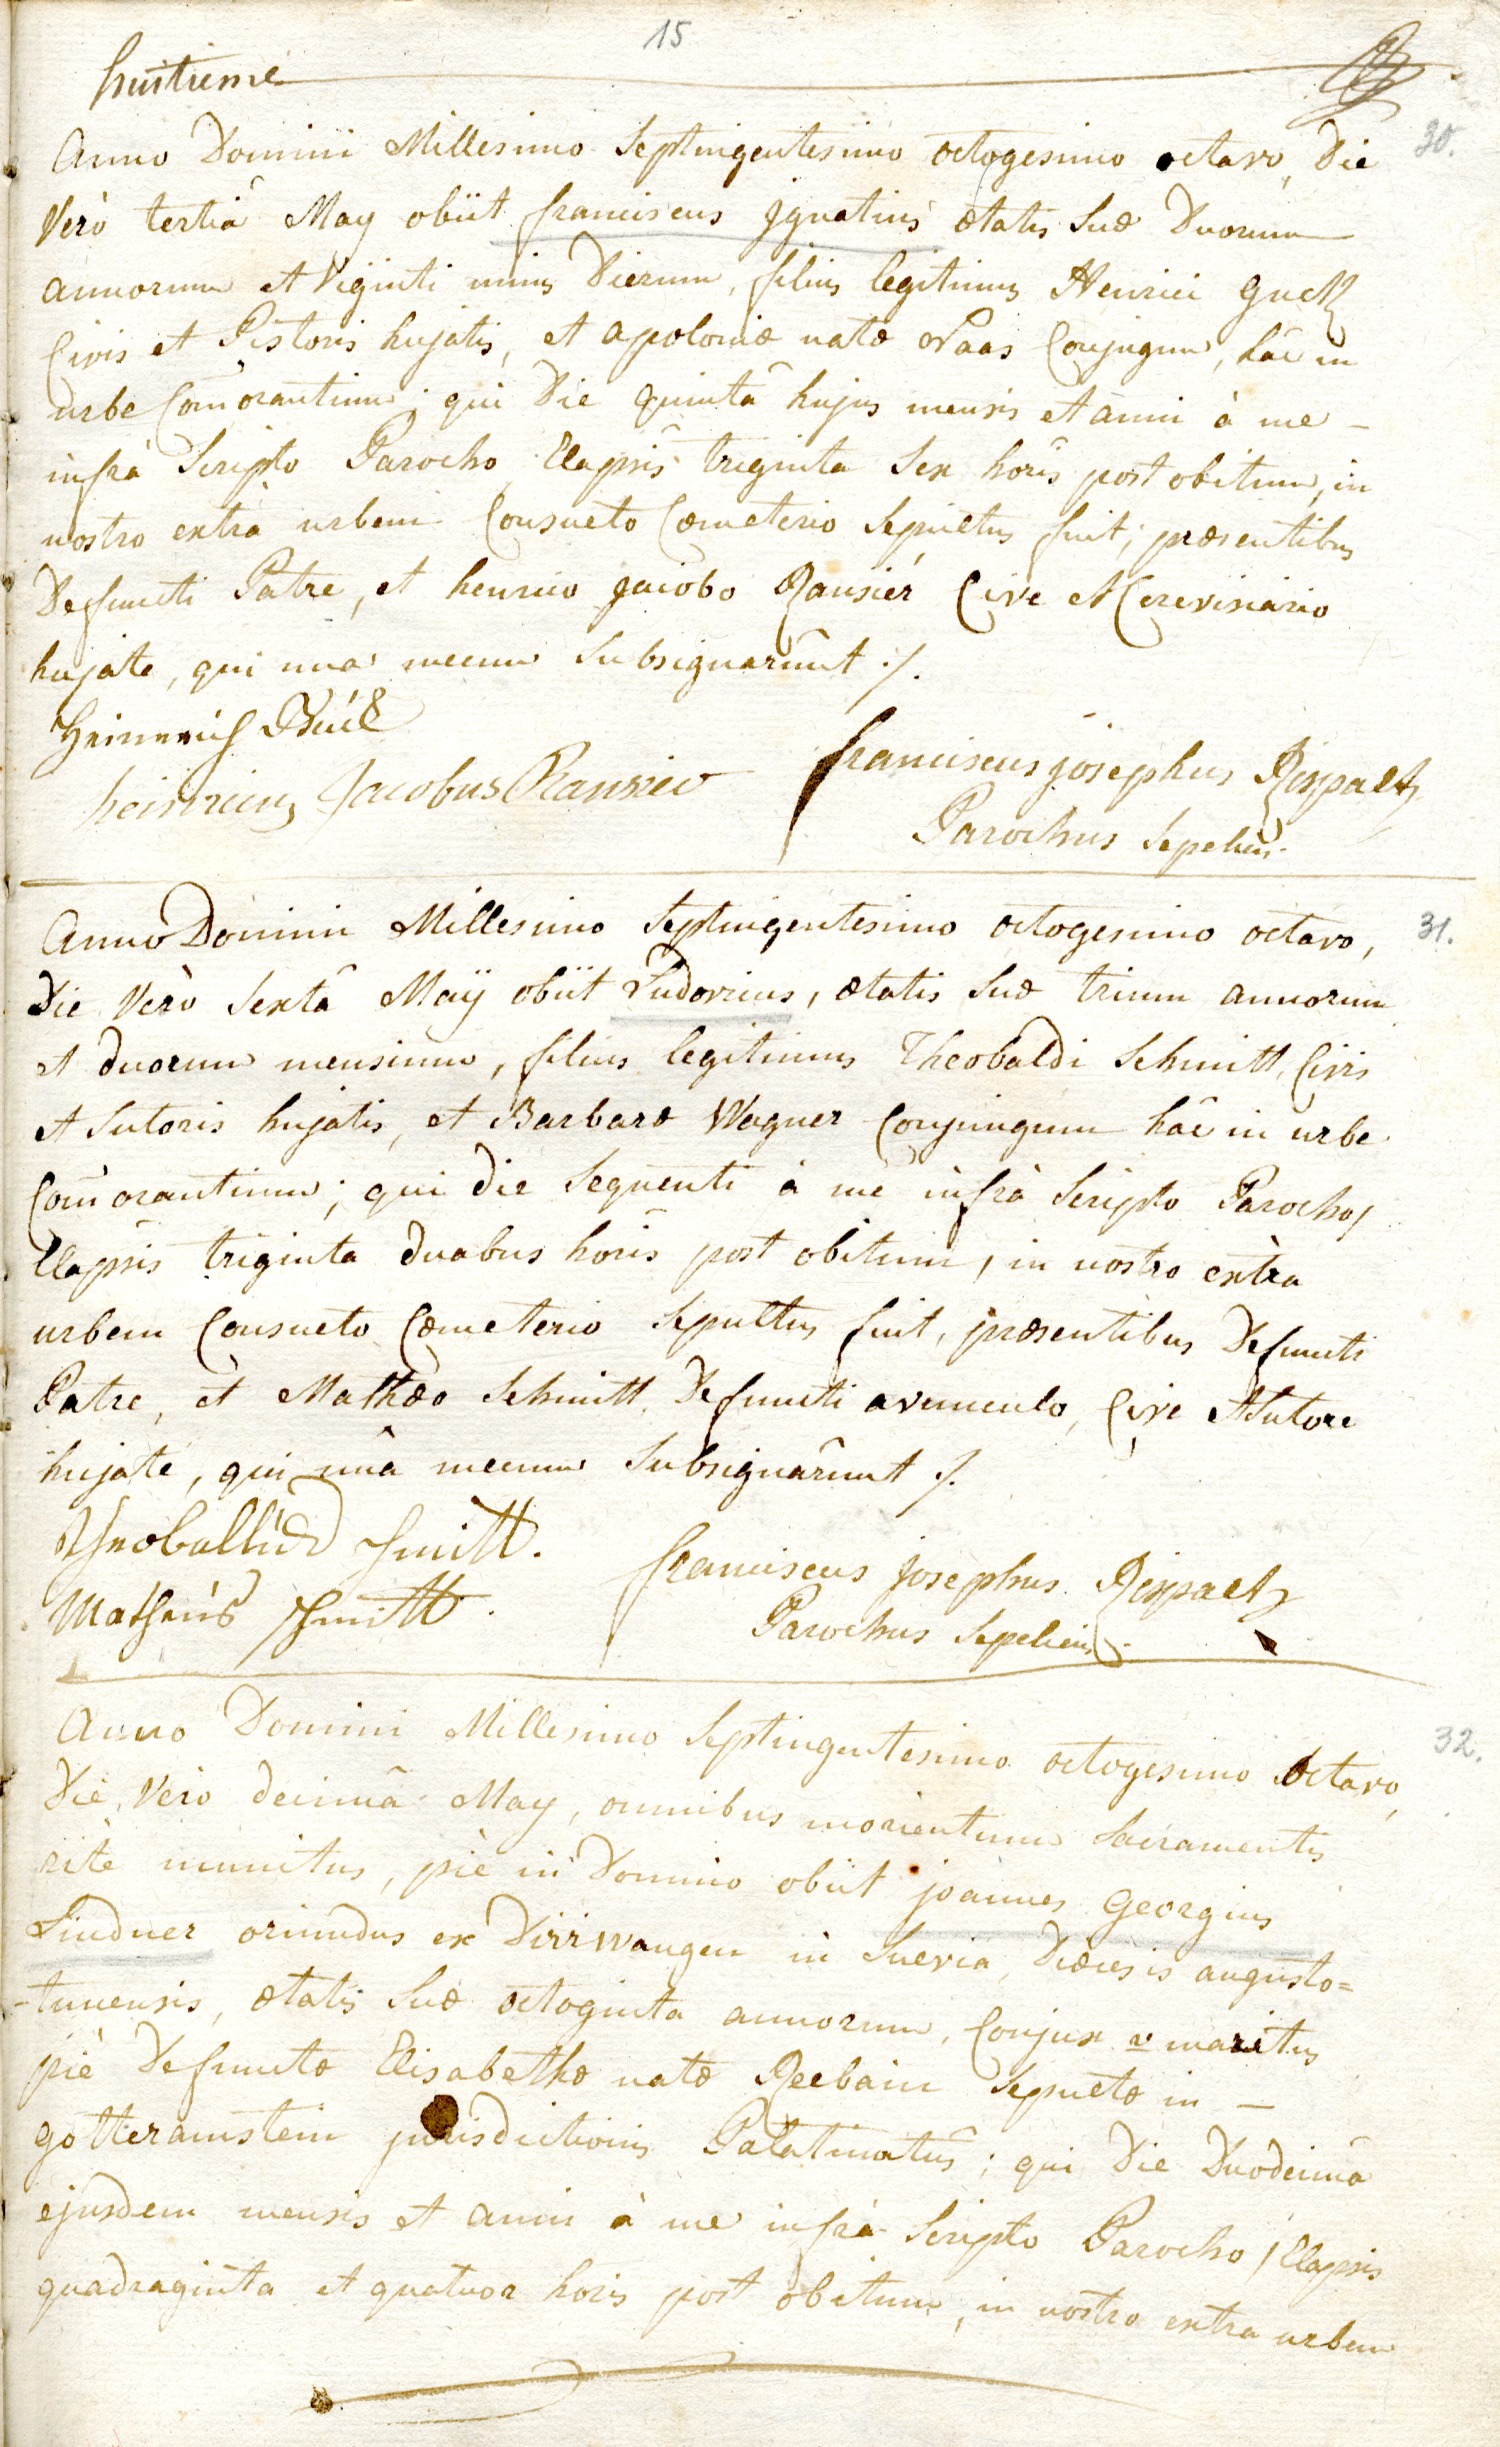 15
huitieme
30.
Anno Domini Millesimo Septingentesimo octogesimo octavo, Die
Verò tertiâ May obiit franciscus Ignatius ætatis suæ Duorum
annorum et Viginti unius Dierum, filius legitimus Henrici
Civis et Pistoris hujatis, et apoloniæ natæ Conjugum, hâc in
urbe Com̃orantium; qui Die quintâ hujus mensis et anni à me –
infrà Scripto Parocho, Elapsis triginta Sex horis post obitum, in
nostro extrà urbem Consueto Cœmeterio Sepultus fuit; præsentibus
Defuncti Patre, et henrico Jacobo Ransier Cive et Cerevisiario
hujate, qui unà mecum Subsignarûnt ./.
Jacobus Ransier
franciscus josephus Rispaltz
Parochus Sepeliens.
31.
Anno Domini Millesimo Septingentesimo octogesimo octavo,
Die Verò Sextâ Maÿ obiit Ludovicus, ætatis suæ trium annorum
et duorum mensium, filius legitimus Theobaldi Schmitt, Civis
et Sutoris hujatis, et Barbaræ Wagner Conjugum hâc in urbe
Com̃orantium; qui die Sequenti à me infrà Scripto Parocho,
Elapsis triginta duabus horis post obitum, in nostro extrà
urbem Consueto Cœmeterio Sepultus fuit, præsentibus Defuncti
Patre, et Mathæo Schmitt, Defuncti avunculo, Cive et Sutore
hujate, qui unâ mecum Subsignarûnt ./.
Schmitt.
Matheus Schmitt.
franciscus josephus Rispaltz
Parochus Sepeliens.
32.
Anno Domini Millesimo Septingentesimo octogesimo octavo,
Die Verò decimâ May, omnibus morientium Sacramentis
ritè munitus, piè in Domino obiit joannes Georgius
Lindner oriundus ex Dirrwangen in Suevia, Diœcesis augusto=
-tunensis, ætatis suæ octoginta annorum, Conjux v maritus
piè Defunctæ Elisabethæ natæ Reebain Sepultæ in –
gotteramstein jurisdictionis Palatinatûs; qui Die Duodecimâ
ejusdem mensis et anni à me infrà Scripto Parocho, Elapsis
quadraginta et quatuor horis post obitum, in nostro extra urbem